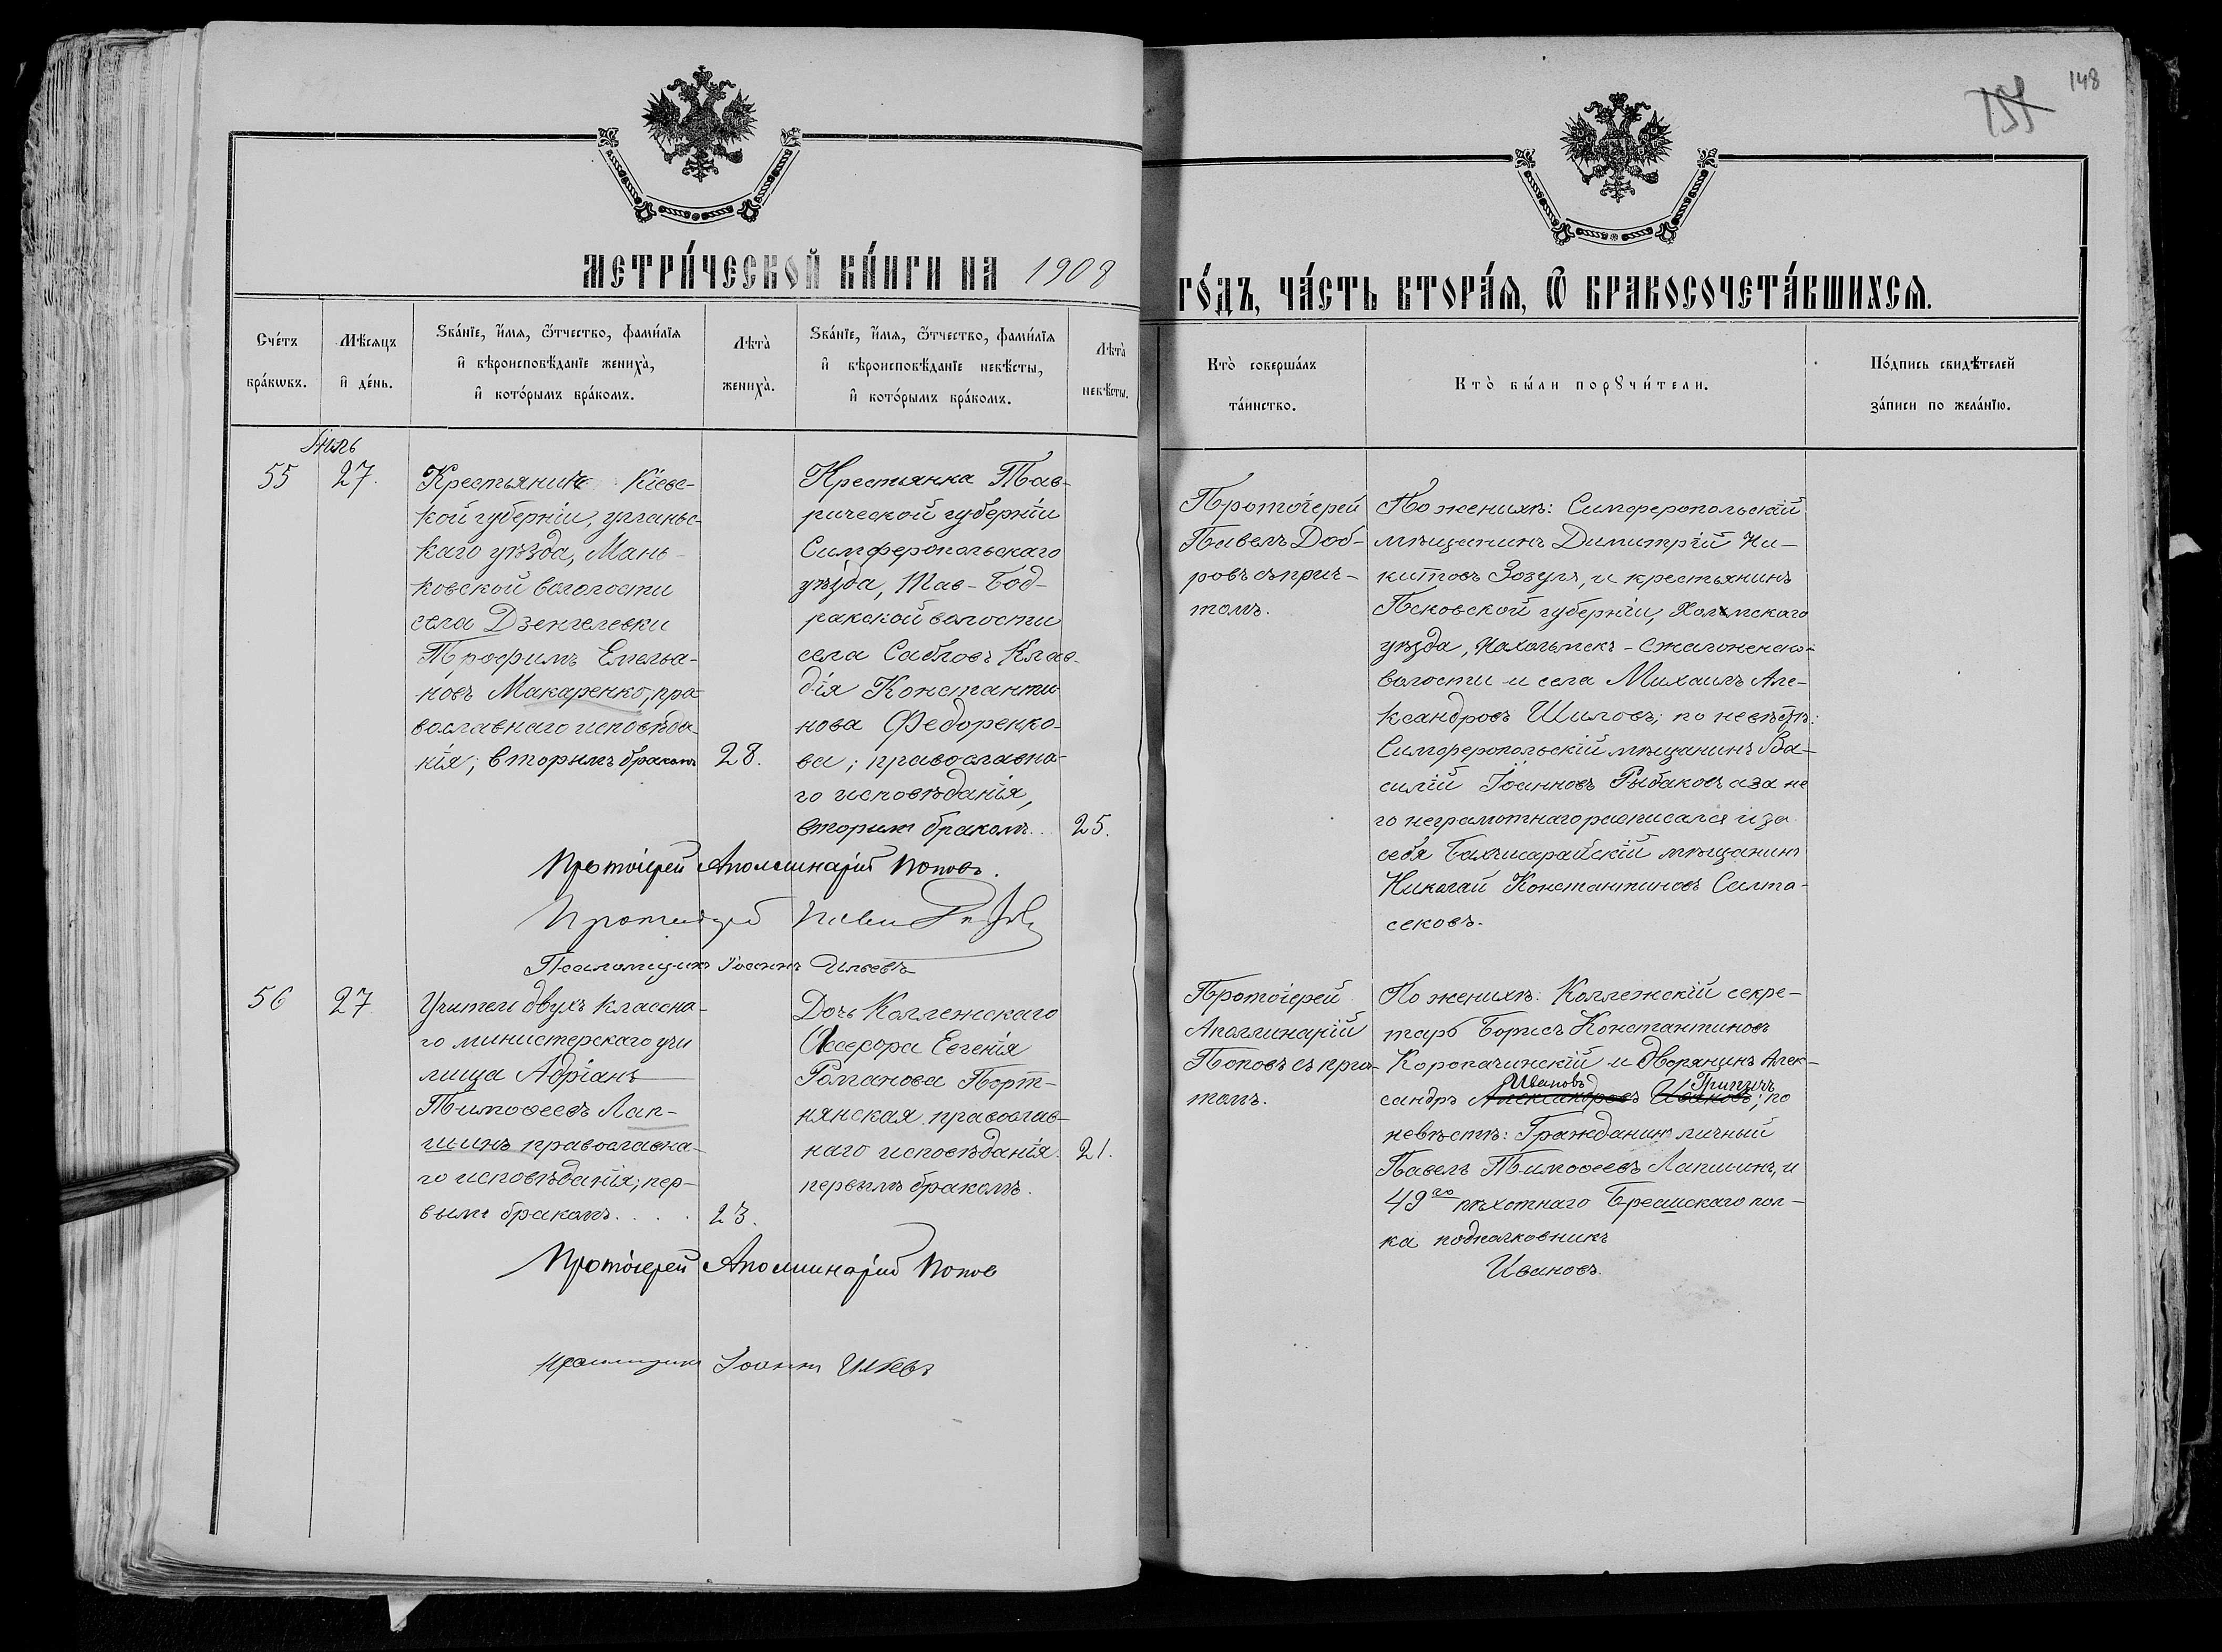 148
155
МЕТРИ́ЧЕСКОЙ КНИ́ГИ НА 1908
ГО́ДЪ, ЧА́СТЬ ВТОРА́Я, Ѿ БРАКОСОЧЕТА́ВШИХСѦ.
Сче́тъ бра́кωвъ.
Мѣ́сяцъ и҆ де́нь.
Ѕва́нїе, и҆́мѧ, ѻ҆́тчество, фами́лїѧ
и҆ вѣроисповѣ́данїе жениха̀,
и҆ кото́рымъ бра́комъ.
Лѣта̀ жениха̀.
Ѕва́нїе, и҆́мѧ, ѻ҆́тчество, фами́лїѧ
и҆ вѣроисповѣ́данїе невѣ́сты,
и҆ кото́рымъ бра́комъ.
Лѣта̀ невѣ́сты.
Кто̀ соверша́лъ
та́инство.
Кто̀ бы́ли порꙋчи́тели.
По́дпись свидѣ́телей
за́писи по жела́нїю.
55
27.
Крестьянинъ Кіевс-
кой губерніи, уманьс-
каго уѣзда, Мань-
ковской вололости
села Дзенгелевки
Трофимъ Емелья-
новъ Макаренко, пра-
вославнаго исповѣда-
нія; вторымъ бракомъ
28.
Крестьянка Тав-
рической губерніи
Симферопольскаго
уѣзда, Тав-Бод-
ракской волости
села Сабловъ Клав-
дія Константи-
нова Федоренко-
ва; православна-
го исповѣданія,
вторым бракомъ..
25.
Протоіерей
Павелъ Доб-
ровъ съ прич-
томъ.
По женихѣ: Симферопольскій
мѣщанинъ Димитрій Ни-
китовъ Зозуля, и крестьянинъ
Псковской губерніи, Холмскаго
уѣзда,
волости и села Михаилъ Але-
ксандровъ Шиловъ; по невѣстѣ:
Симферопольскій мѣщанинъ Ва-
силій Іоанновъ Рыбаковъ а за не
го неграмотнаго расписался и за
себя Бахчисарайскій мѣщанинъ
Николай Константиновъ Салта-
сековъ.
Протоіерей Аполлинарій Поповъ.
Протоіерей Павелъ
Псаломщикъ Іоаннъ Ильевъ
56
27
Учитель двухъ классна-
го министерскаго учи
лища Адріанъ
Тимоѳеевъ Лап-
шинъ православна-
го исповѣданія; пер-
вымъ бракомъ. . . .
23.
Дочь Коллежскаго
Ассесора Евгенія
Романова Порт-
нянская православ-
наго исповѣданія.
первымъ бракомъ.
21.
Протоіерей
Аполлинарій
Поповъ съ прич-
томъ.
По женихѣ: Коллежскій секре-
тарь Борисъ Константиновъ
Коропачинскій и дворянинъ Алек-
Ивановъ
сандръ Александровъ Ивановъ; по
невѣстѣ: Гражданинъ личный
Павелъ Тимоѳеевъ Лапшинъ, и
49го пѣхотнаго Брестскаго пол-
ка подполковникъ
Ивановъ.
Протоіерей Аполлинарій Попов
Псаломщикъ Іоаннъ Ильевъ